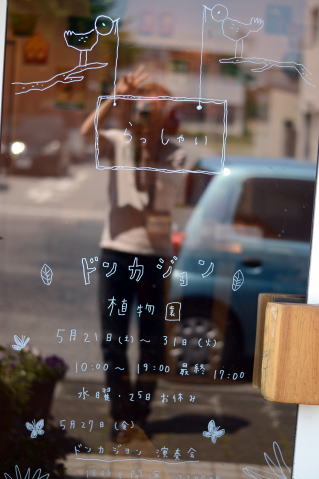 らっしゃい
ドンカジョン
植物園
5月21日(土)〜31日(火)
10:00〜19:00 最終17:00
水曜・25日お休み
5月27日(金)
ドンカジョン 演奏会